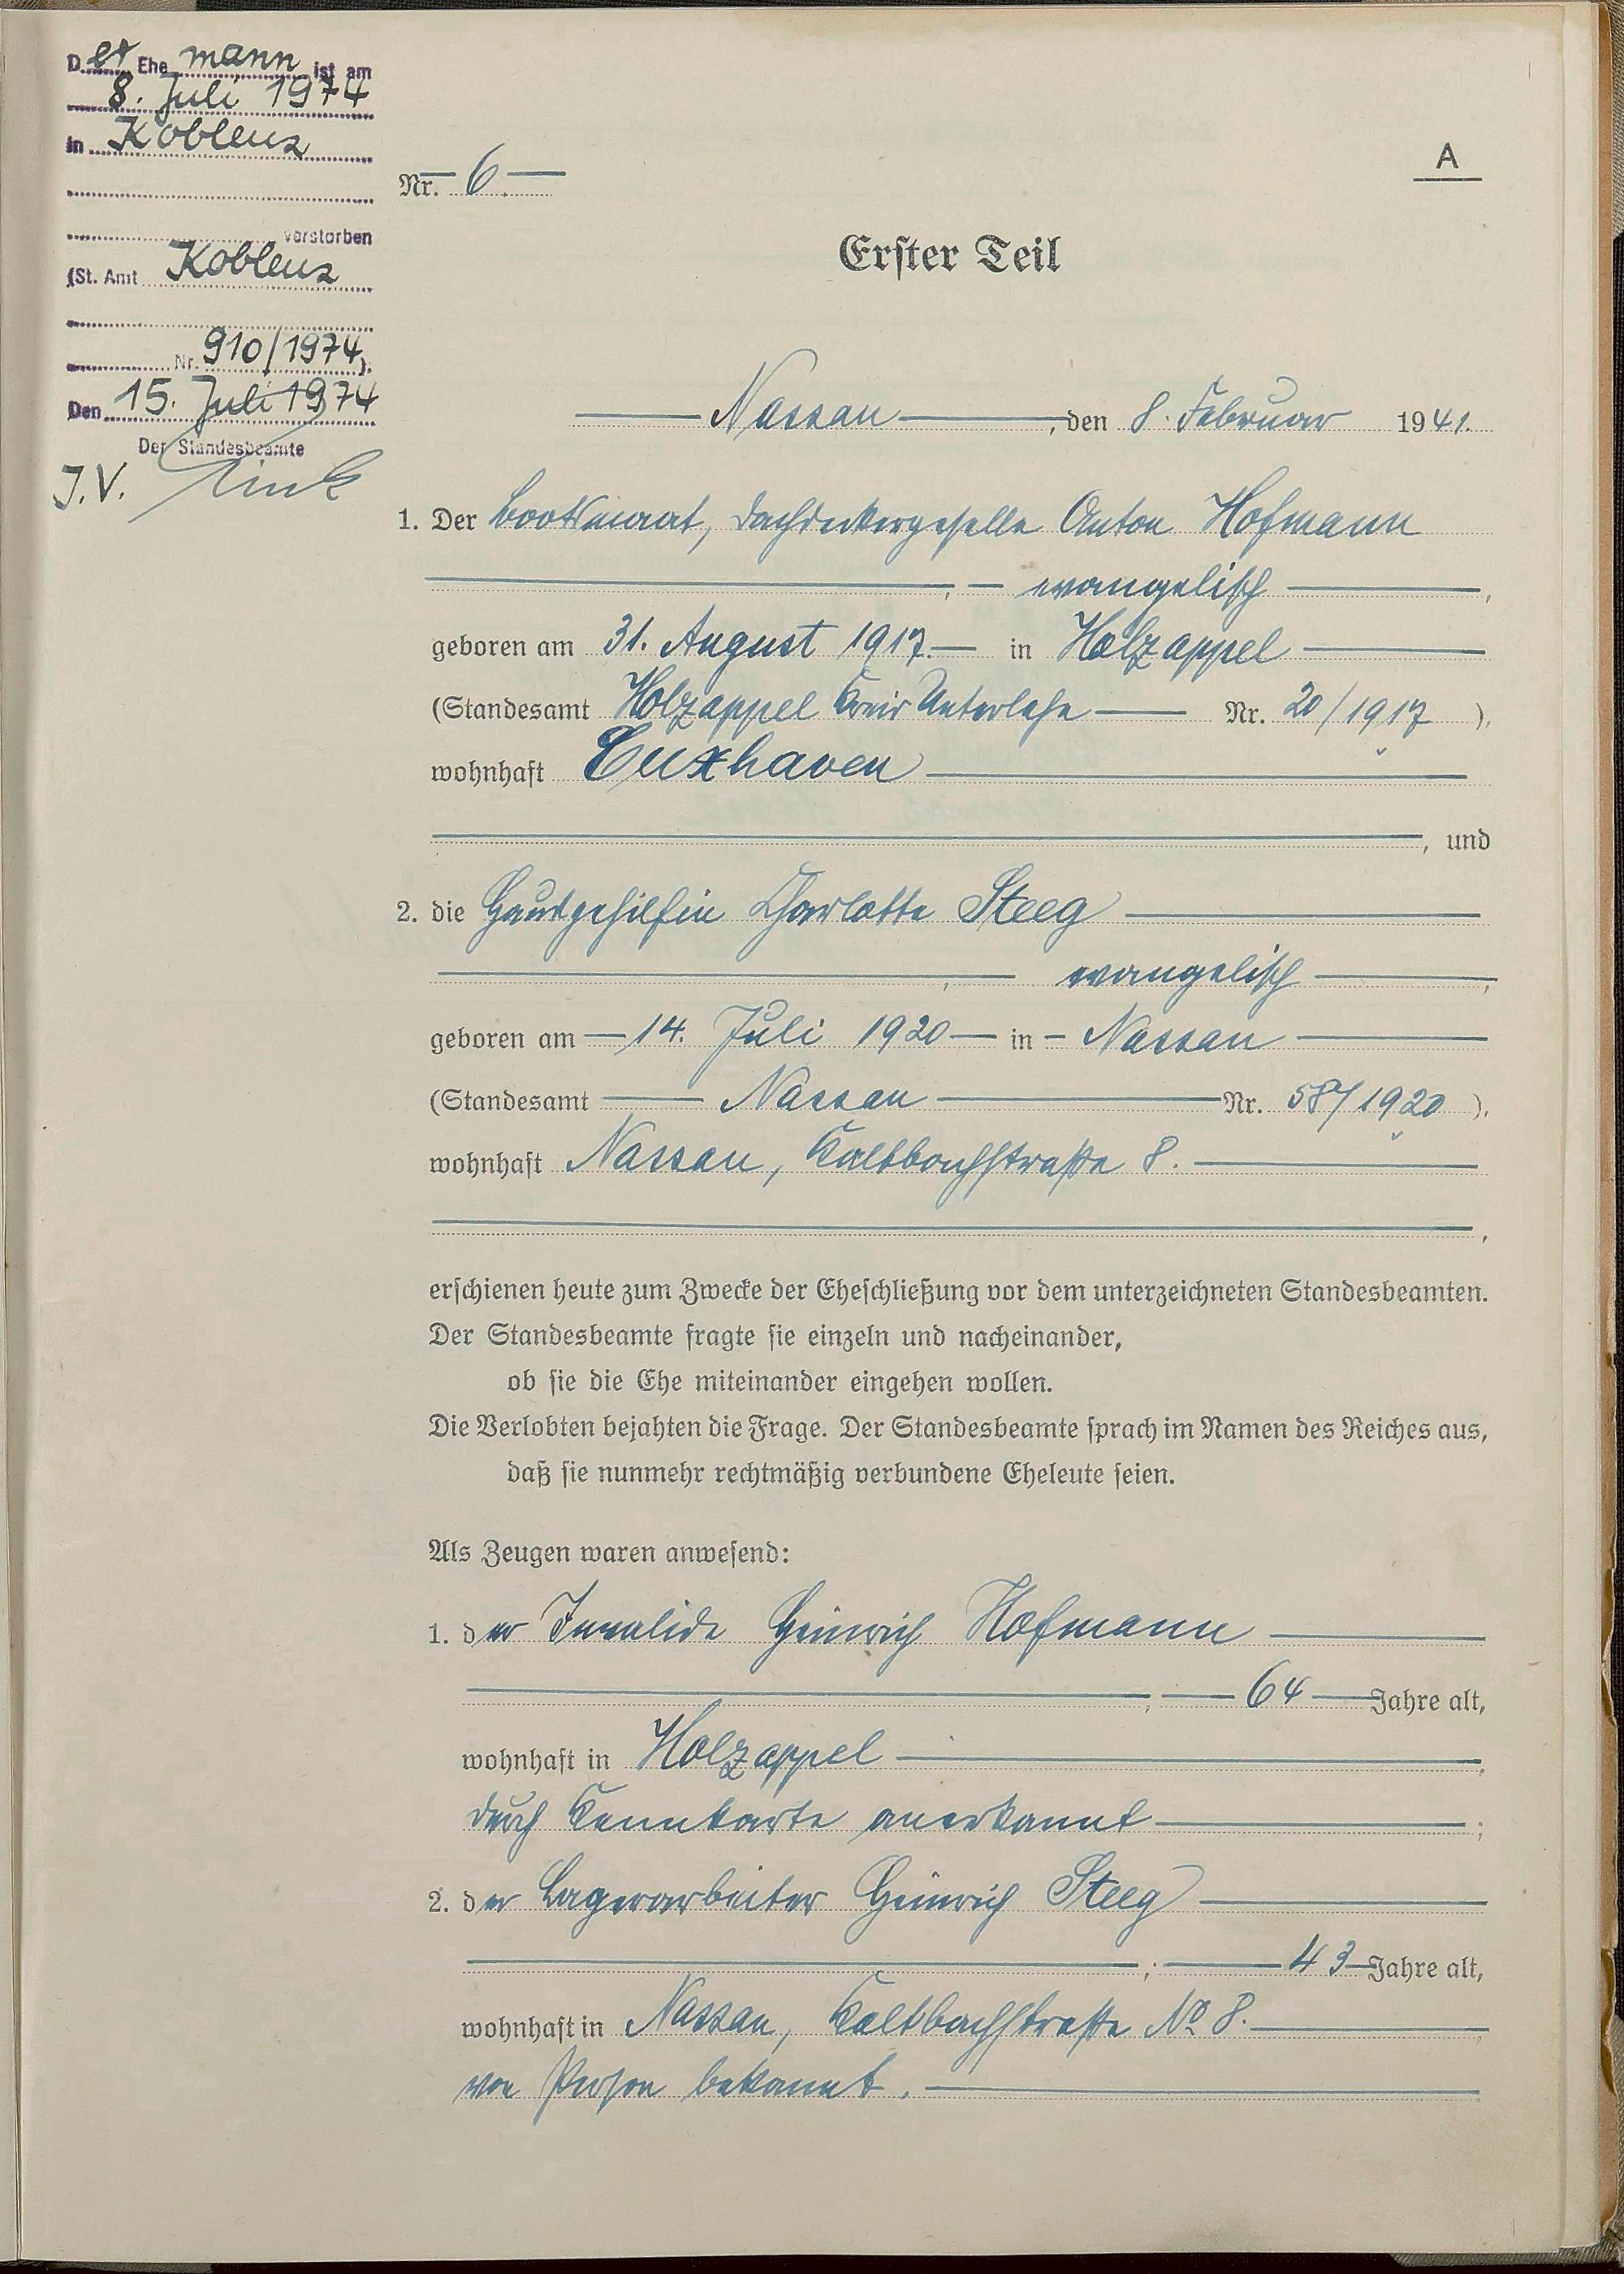 Der Ehemann ist am
8. Juli 1974
in Koblenz
verstorben
(St. Amt Koblenz
Nr. 910/1974).
Den 15. Juli 1974
Der Standesbeamte
J.V.
A
Nr. 6.
Erster Teil
Nassau, den 8. Februar 1941.
1. Der Bootsmaat, Dachdeckergeselle Anton Hofmann
, evangelisch,
geboren am 31. August 1917. in Holzappel
(Standesamt Holzappel Kreis Unterlahn Nr. 20/1917 ),
wohnhaft Cuxhaven
, und
2. die Hausgehilfin Charlotte Steeg
, evangelisch,
geboren am 14. Juli 1920 in Nassau
(Standesamt Nassau Nr. 58/1920 ),
wohnhaft Nassau, Kaltbachstraße 8.
,
erschienen heute zum Zwecke der Eheschließung vor dem unterzeichneten Standesbeamten.
Der Standesbeamte fragte sie einzeln und nacheinander,
ob sie die Ehe miteinander eingehen wollen.
Die Verlobten bejahten die Frage. Der Standesbeamte sprach im Namen des Reiches aus,
daß sie nunmehr rechtmäßig verbundene Eheleute seien.
Als Zeugen waren anwesend:
1. der Invalide Heinrich Hofmann
, 64 Jahre alt,
wohnhaft in Holzappel,
durch Kennkarte anerkannt;
2. der Lagerarbeiter Heinrich Steeg
, 43 Jahre alt,
wohnhaft in Nassau, Kaltbachstraße № 8.
von Person bekannt.